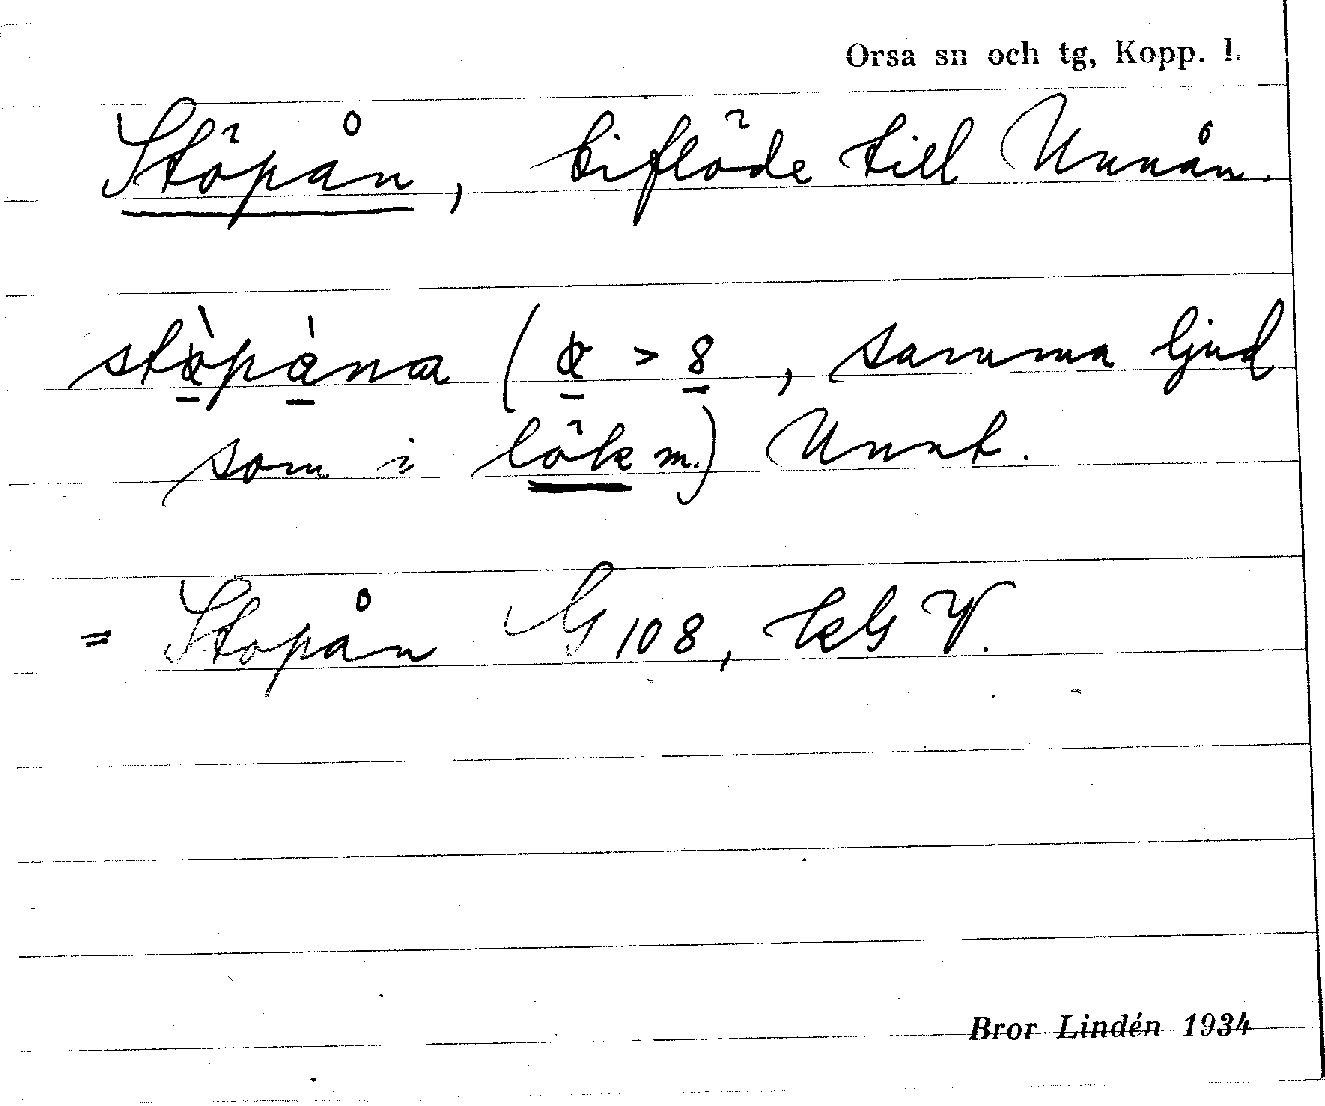 Orsa sn och tg, Kopp. l.
Stöpån, biflöde till Unnån.
(> 8, samma ljud
som i lök m.) Unnt.
= Stopån G 108, kbl V.
Bror Lindén 1934